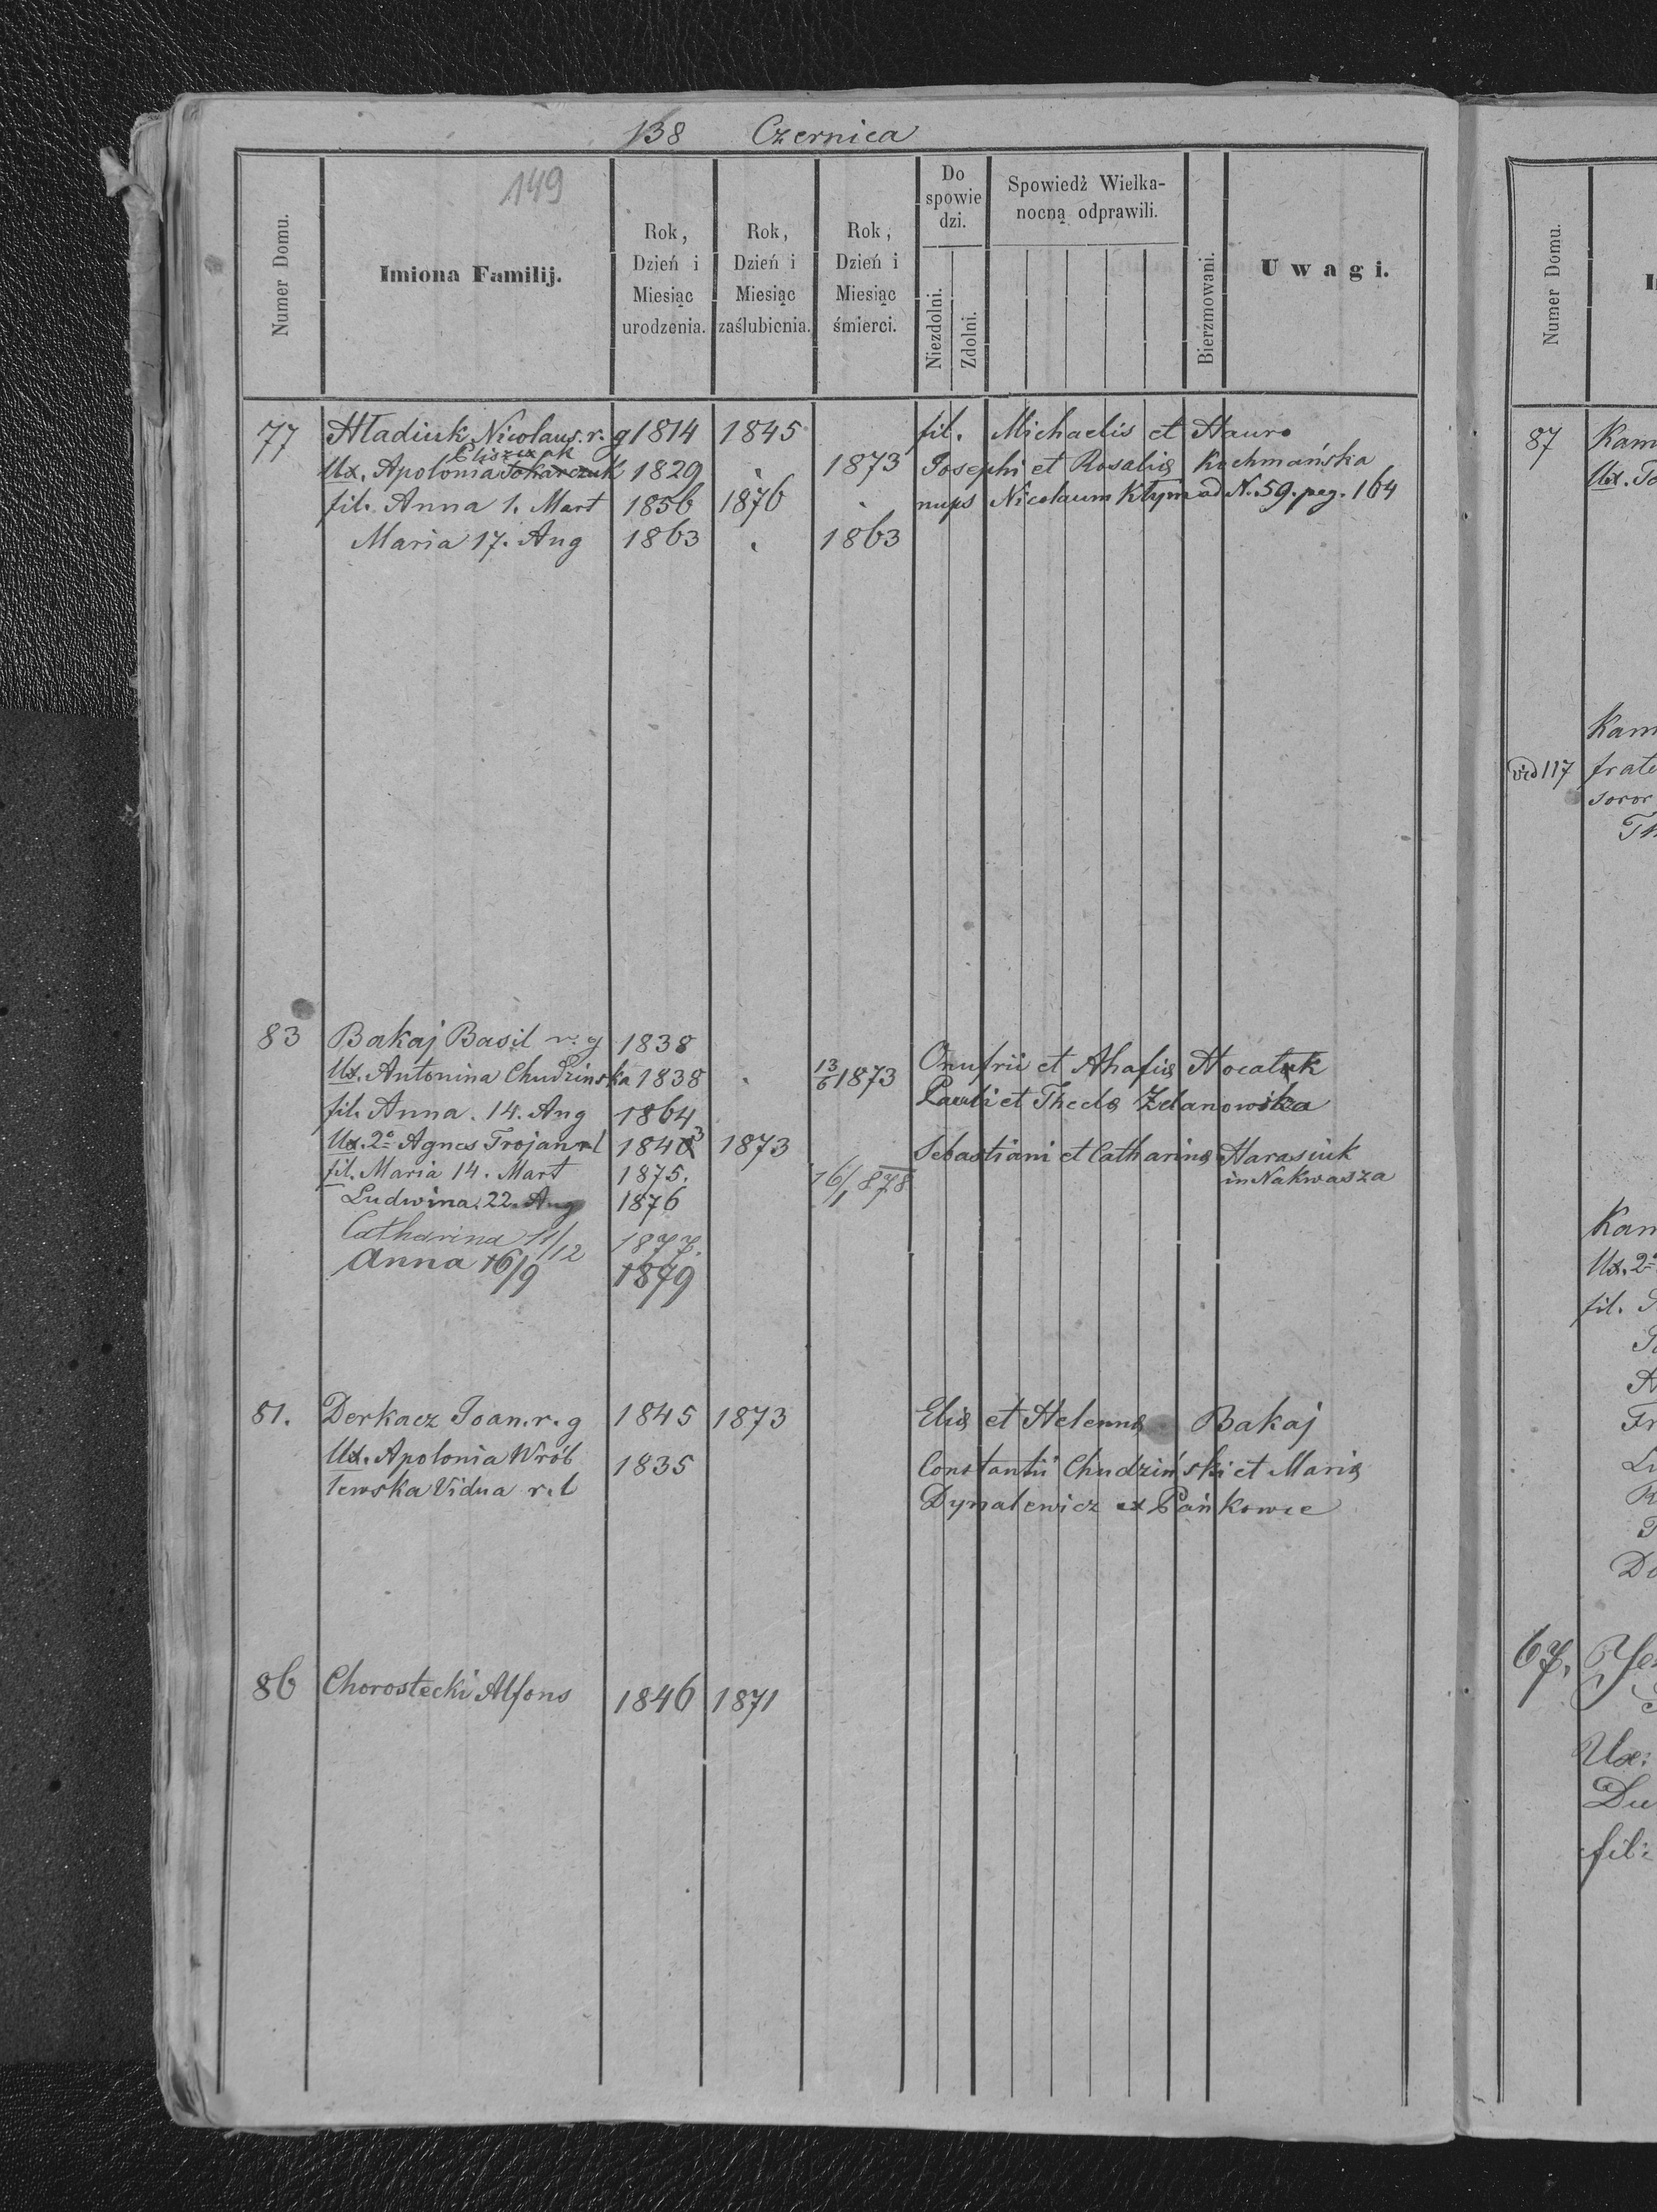 138 Czernica
149
Numer Domu.
Imiona Familij.
Rok, Dzień i Miesiąc urodzenia.
Rok, Dzień i Miesiąc zaślubienia.
Rok, Dzień i Miesiąc śmierci.
Do spowie dzi.
Niezdolni.
Zdolni.
Spowiedź Wielka-
nocną odprawili.
Bierzmowani.
Uwagi.
77 Hładiuk Nicolaus. r. g 1814 1845 fil. Michaelis et
Eliszczak
Ux. Apolonia Tokarczuk 1829 1873 Josephi et Rosalia Kochmańska
fil. Anna 1. Mart 1856 1876 nups Nicolaum Kłym ad N. 59. pag. 164
Maria 17. Aug 1863 1863
83 Bakaj Basil r. g 1838 Onufrii et Ahafia
Ux. Antonina Chudzinska 1838 13/6 1873 Pauli et Thecla Zdanowska
fil. Anna. 14. Aug 1864
Ux. 2º Agnes Trojan rl 1843 1873 Sebastiani et Catharina Harasiuk
fil. Maria 14. Mart 1875. 16/1 878 in Nakwasza
Ludwina. 22. Aug 1876
Catharina 11/12 1877.
Anna 16/9 1879
81. Derkacz Joan. r. g 1845 1873 Elia et Helenna Bakaj
Ux. Apolonia Wrób 1835 Constantii Chudziński et Maria
lewska Vidua r. l Dynalewicz ex Pańkowce
86 Chorostecki Alfons 1846 1871
Numer Domu.
87 Kam
Ux.
Kam
vid 117 frate
soror
Kam
Ux. 2º
fil.
67.
Ux:
Du
fil: